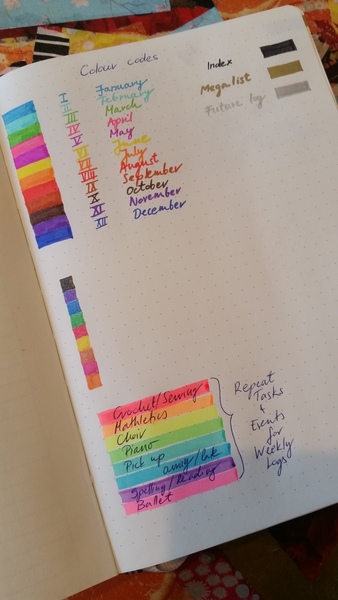 Colour codes
I January
II February
III March
IV April
V May
VI June
VII July
VIII August
IX September
X October
XI November
XII December
Index
Megalist
Future log
Crochet/Sewing
Mathletics
Choir
Piano
Pick up
Spelling/Reading
Ballet
Repeat
Tasks
+
Events
for
Weekly
Logs